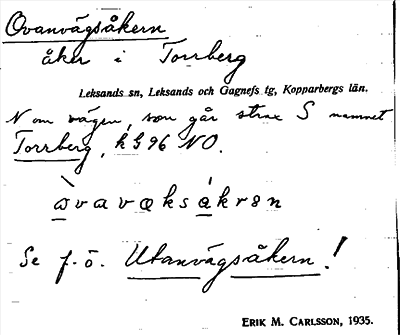 Ovanvägsåkern
åker i Torrberg
Leksands sn, Leksands och Gagnefs tg, Kopparbergs län.
N om vägen, som går strax S namnet
Torrberg, k G 96 NO.
Se f. ö. Utanvägsåkern!
ERIK M. CARLSSON, 1935.